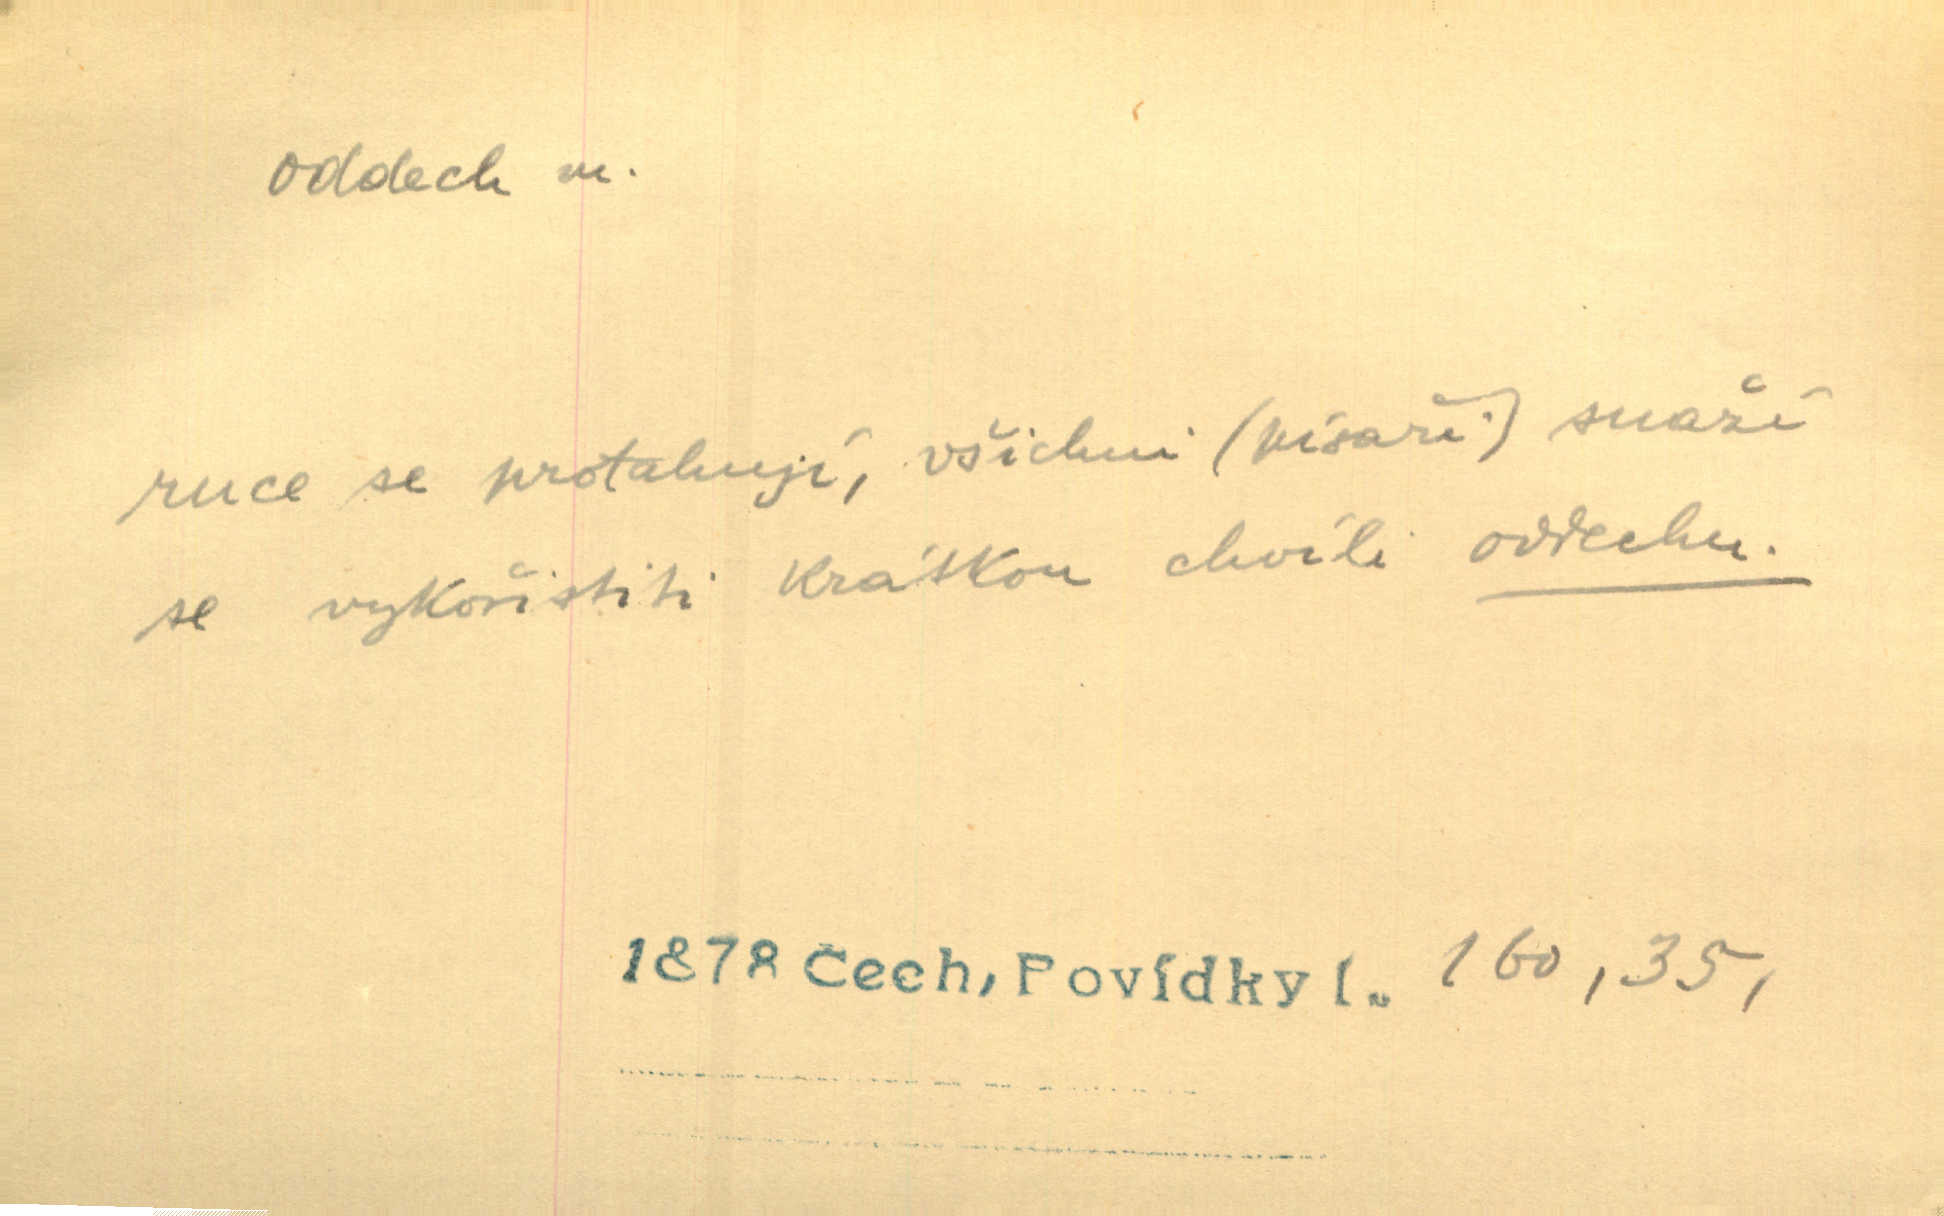 oddech m.
ruce se protahují, všichni (písaři) snaží
se vykořistiti krátkou chvíli oddechu.
1878 Čech, Povídky I. 160, 35,